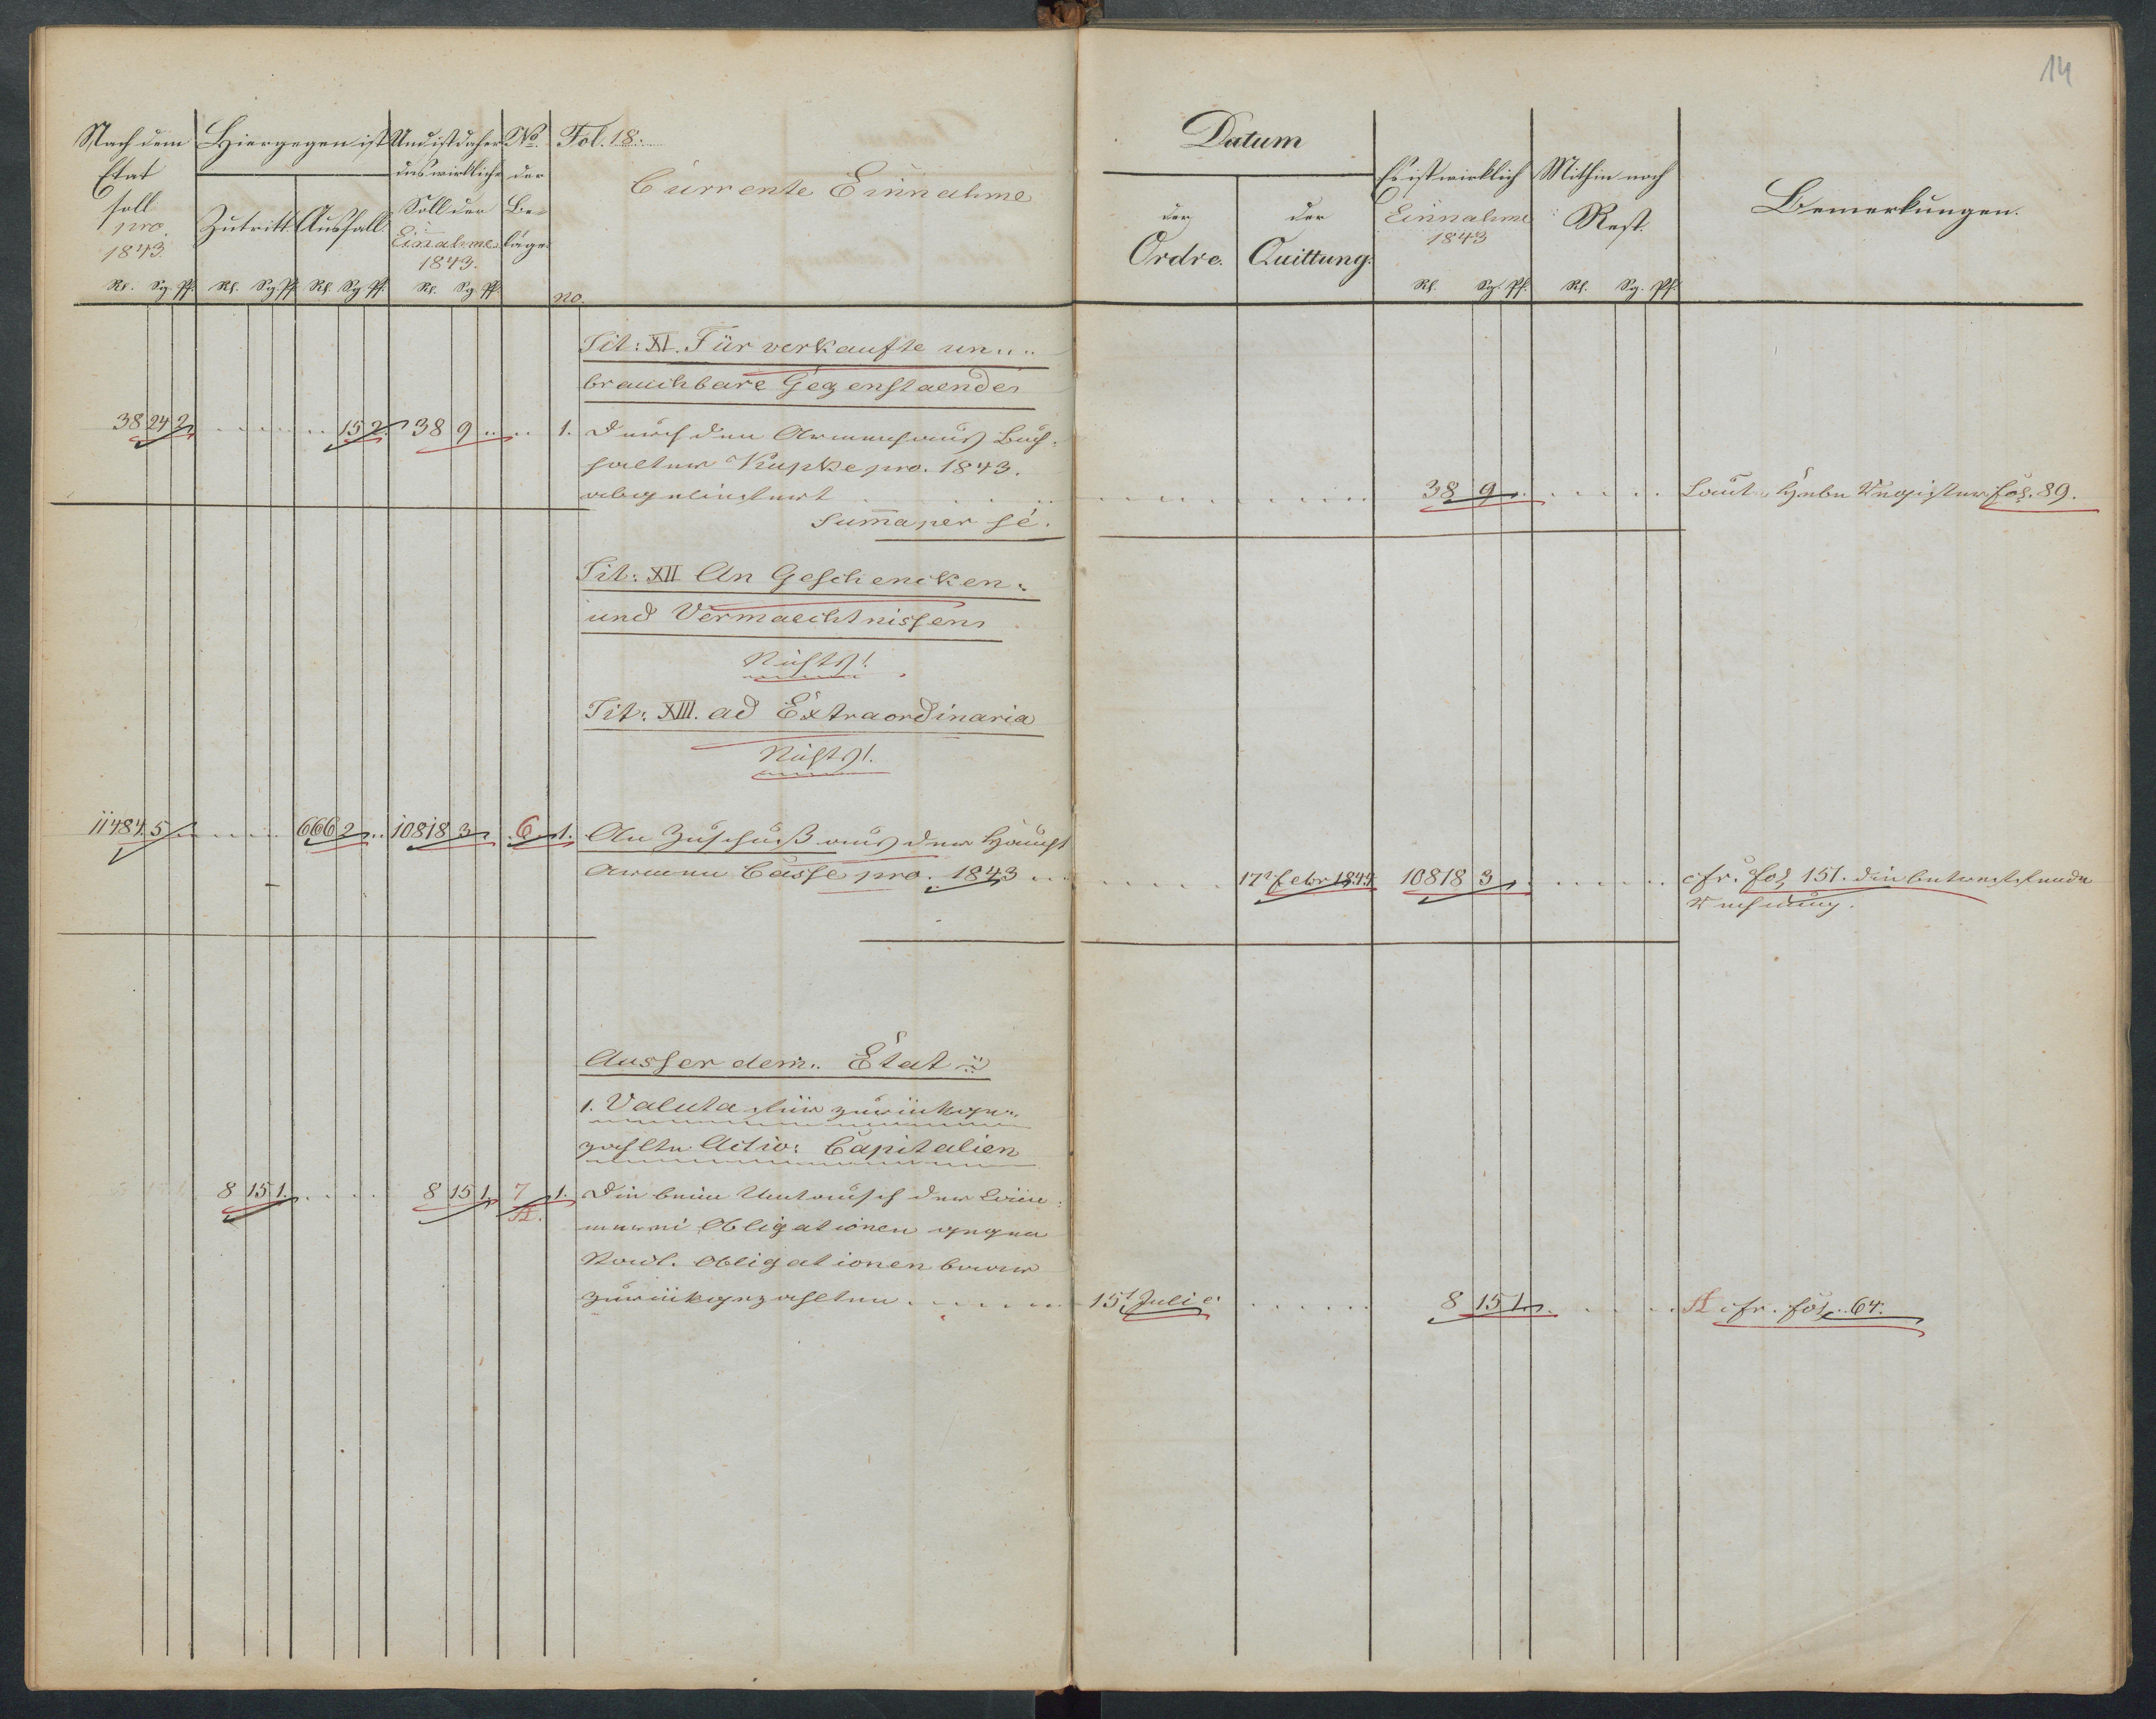 14
Nach dem
Etat
soll
pro.
1843.
Rt. Sg. Pf.
Hiergegen ist
Zutritt
Ausfall.
Rt. Sg. Pf. Rt. Sg. Pf.
Und ist daher
das wirkliche
Soll der
Einnahme
1843.
Rt. Sg. Pf.
No.
der
Be-
läge.
Fol. 18.
Currente Einnahme
no.
Datum
der
Ordre.
der
Quittung.
Es ist wirklich
Einnahme
1843
Rt. Sg. Pf.
Mithin noch
Rest.
Rt. Sg. Pf.
Bemerkungen.
Tit: XI. Für verkaufte un
brauchbare Gegenstaende
38 24 2 15 2 38 9 1. Durch den Armenhaus Buch-
halter Kupke pro. 1843.
abgeliefert 38 9 Laut Hebe Register fol. 89.
Summa per se.
Tit: XII An Geschencken
und Vermaechtnissen
Nichts!
Tit: XIII. ad Extraordinaria
Nichts!
11484 5 666 2 10818 3 6 1. An Zuschuß aus der Haupt
Armen Casse pro. 1843 17t Febr 1844 10818 3 cfr. fol 151. die betreffende
Rechnung.
Ausser dem Etat
1. Valuta für zurückge
zahlte Activ: Capitalien
8 15 1. 8 15 1. 7 1. Die beim Umtausch der
Obligationen gegen
Obligationen baar
zurückgezahlten 15t Juli c. 8 15 1. cfr. fol. 64.